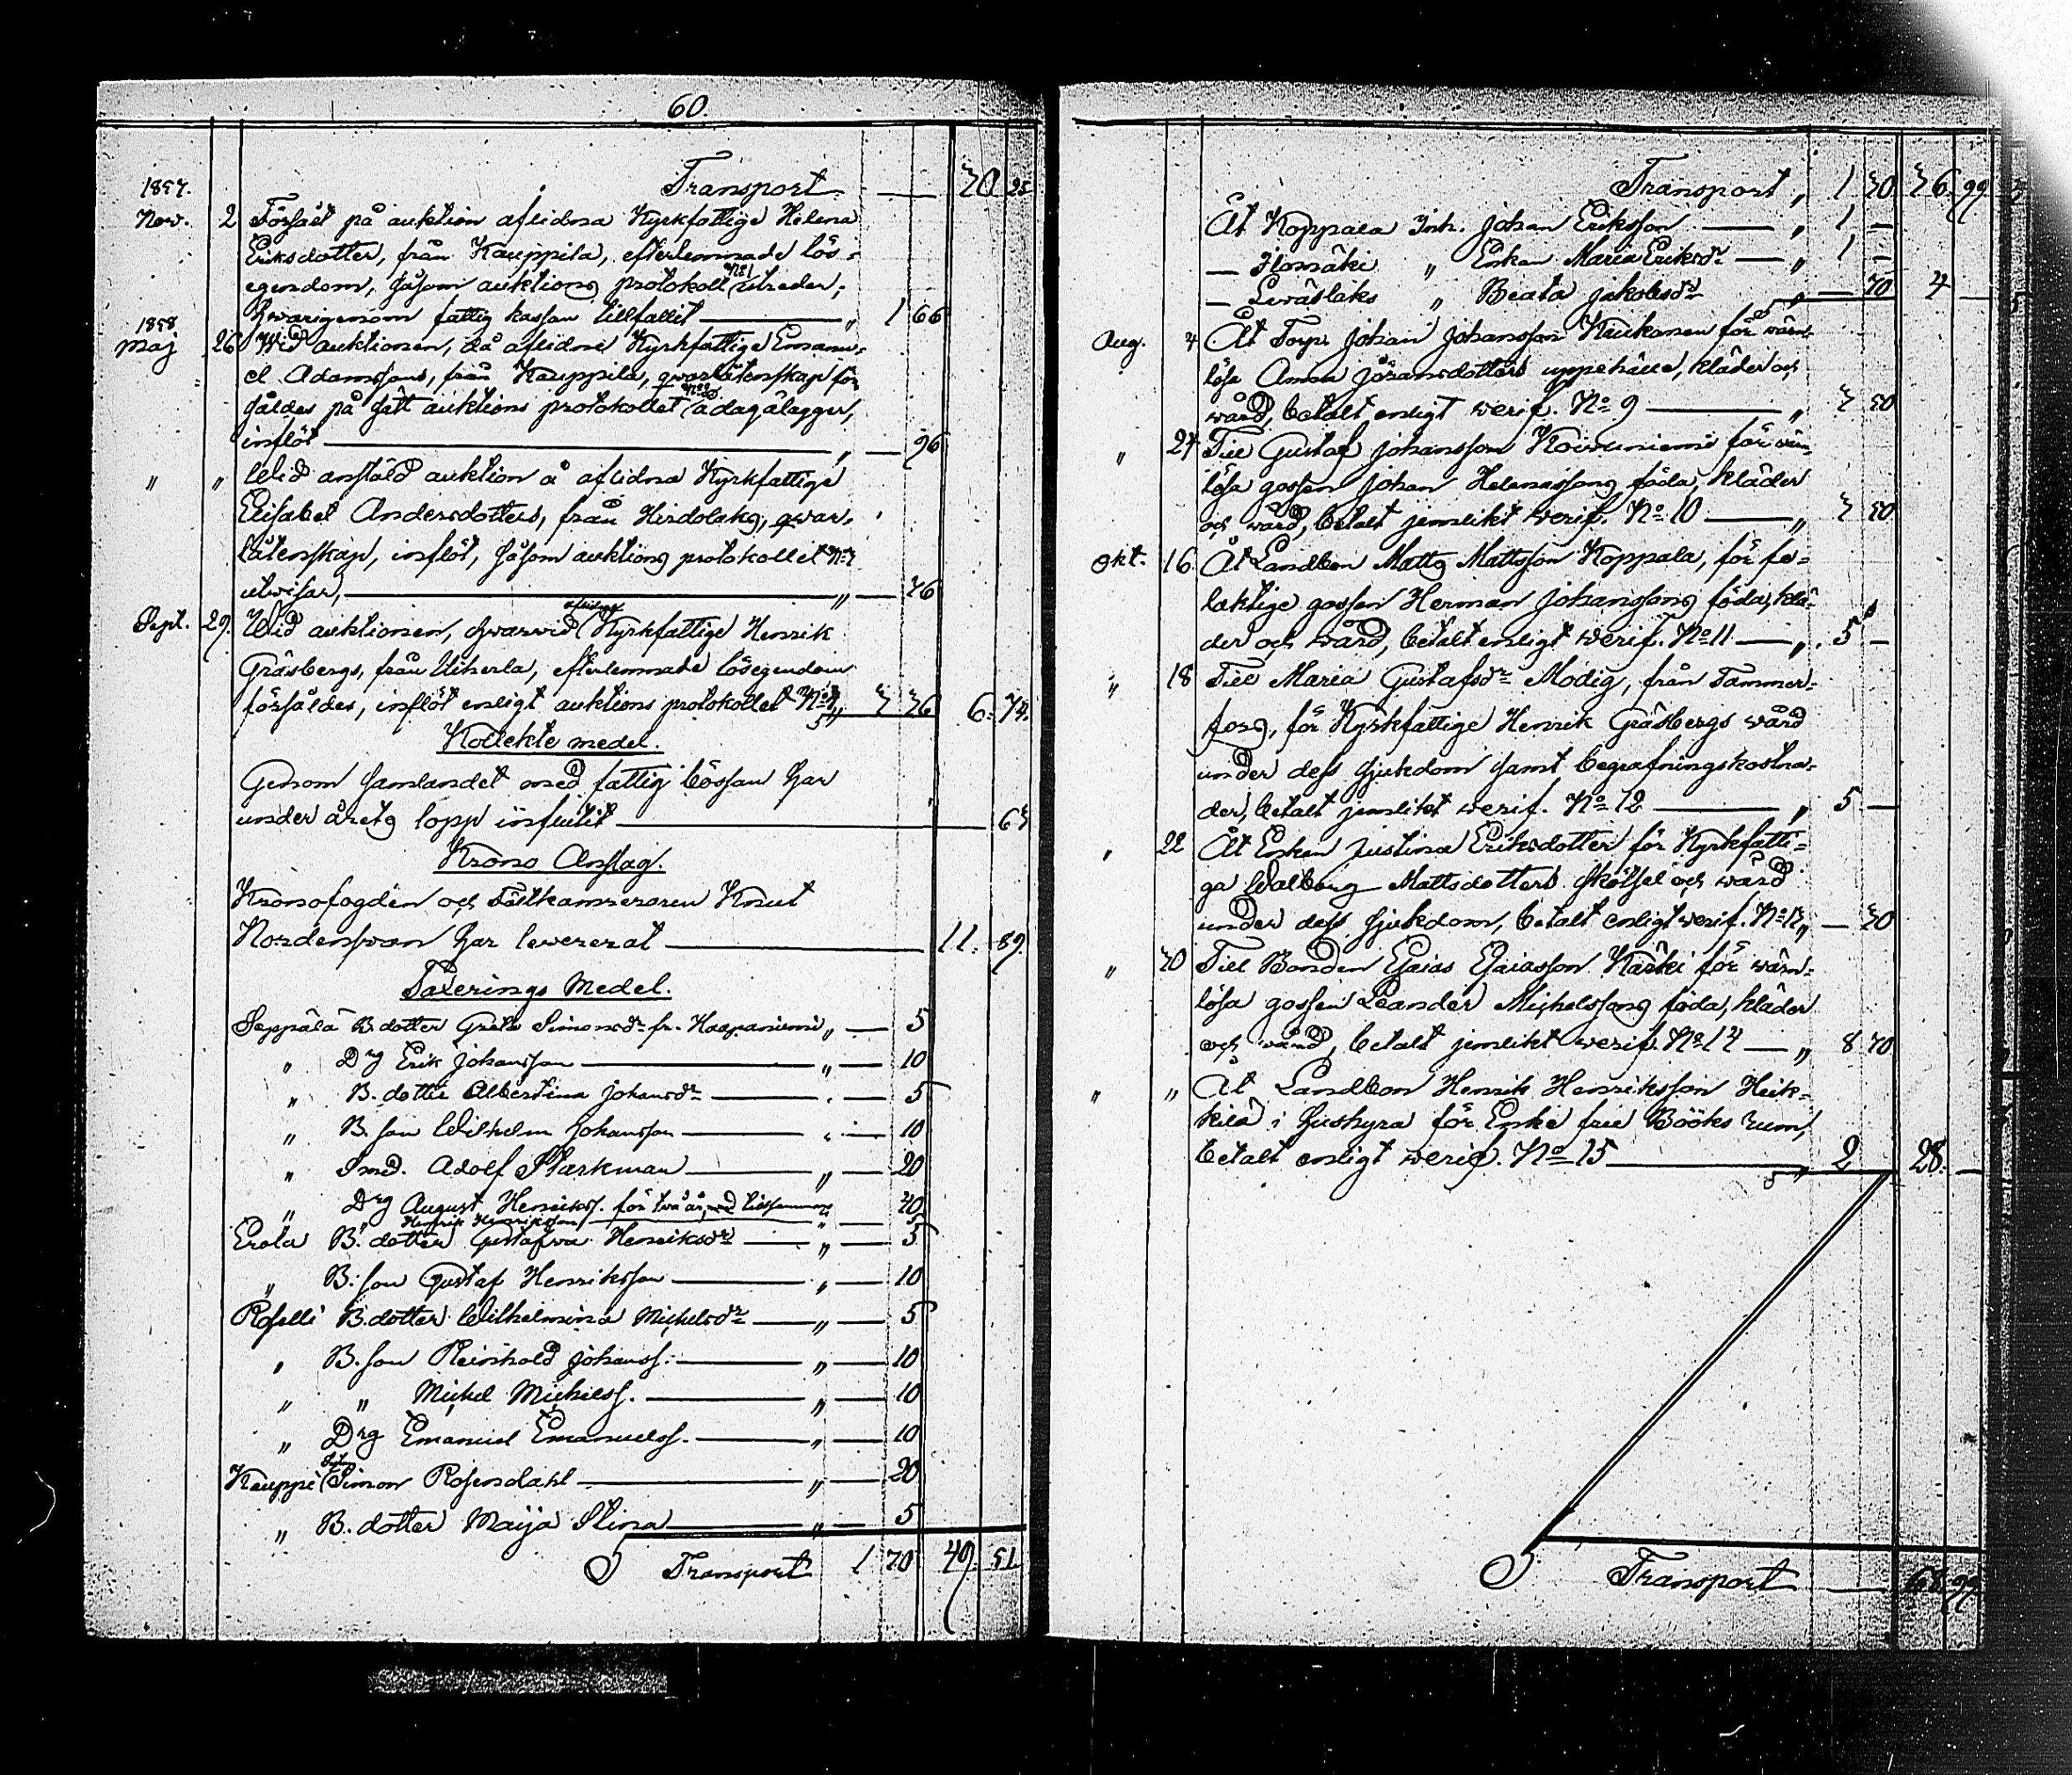 60.
Transport — 30 25
1857.
Nov. 2 Försåldt på auktion aflidna Kyrkfattige Helena
Eriksdotter, från Kauppila, efterlemnade lös-
egendom, såsom auktions protokoll N:o 1 utreder,
hwarigenom fattig kassan tillfallit — „ 1 66
1858
Maj 26 Wid auktionen, då aflidne Kyrkfattige Emanu-
el Adamssons, från Kauppila, qwarlåtenskap för-
såldes på sätt auktions protokollet N:o 2 ådagalägger,
inflöt — „ — 96
„ „ Wid anstäld auktion å aflidna Kyrkfattige
Elisabet Andersdotters, från Hirdolaks, qwar-
låtenskap, inflöt, såsom auktions protokollet N:o 3
utwisar, — „ — 36
Sept. 29. Wid auktionen, hwarwid aflidne Kyrkfattige Henrik
Gräsbergs, från Uiherla, efterlemnade lösegendom
försåldes, inflöt enligt auktions protokollet N:o 4 „ 3 36 6. 34.
Kollekte medel.
Genom samlandet med fattig bössan har
under årets lopp influtit — 63
Krono Anslag.
Kronofogden och Fältkamreraren Knut
Nordenswan har levererat — 11. 89.
Taxerings Medel.
Seppälä B. dotter Greta Simonsdr fr. Haapaniemi „ — 5
„ Drg Erik Johansson — „ — 10
„ B. dotter Albertina Johansdr — „ — 5
„ B. son Wilhelm Johansson — „ — 10
„ Smd. Adolf Starkman — „ — 20
„ Drg August Henrikss. för två år, med tillsammans 40
„ Henrik Henriksson „
Erola B. dotter Gustafwa Henriksdr — „ — 5
„ B. son Gustaf Henriksson — „ — 10
Roselli B. dotter Wilhelmina Michelsdr — „ — 5
„ B. son Reinhold Johanss. — „ — 10
„ „ Michel Michelss. — „ — 10
„ Drg Emanuel Emanuelss. — „ — 10
Kauppi Simon Rosendahl — „ — 20
„ B. dotter Maija Stina — „ — 5
Transport 1 70 49. 51
Transport „ 1 70 36. 99
Åt Koppala Inh. Johan Eriksson — „ 1 —
— Isomäki „ Enkan Maria Eriksdr — „ 1 —
— Lewäslaks „ Beata Jakobsdr „ — 30 4 —
Aug. 4 Åt Torp. Johan Johansson Kaukonen för wärn-
lösa Anna Jöransdotters uppehälle, kläder och
wård, betalt enligt werif. N:o 9 — „ 3 50
„ 24 Till Gustaf Johansson Koivuniemi för wärn-
lösa gossen Johan Helenassons föda, kläder
och wård, betalt jemlikt werif. N:o 10 — „ 3 50
Okt. 16. Åt Landbon Matts Mattsson Koppala, för fe-
laktige gossen Herman Johanssons föda, klä-
der och wård, betalt enligt werif. N:o 11 — „ 5 —
„ 18 Till Maria Gustafsdr Modig, från Tammer-
fors, för Kyrkfattige Henrik Gräsbergs wård
under dess sjukdom samt begrafningskostna-
der, betalt jemlikt werif. N:o 12 — „ 5 —
„ 22 Åt Enkan Justina Eriksdotter för Kyrkfatti-
ga Walborg Mattsdotters skötsel och wård
under dess sjukdom, betalt enligt werif. N:o 13 „ — 30
„ 30 Till Bonden Esaias Esaiasson Kärki för wärn-
lösa gossen Leander Michelssons föda, kläder
och wård, betalt jemlikt werif. N:o 14 — „ 8 70
„ „ Åt Landbon Henrik Henriksson Heik-
kilä i hushyra för Enke fru Bööks rum,
betalt enligt werif. N:o 15 — „ 2 28. —
Transport — 68 99